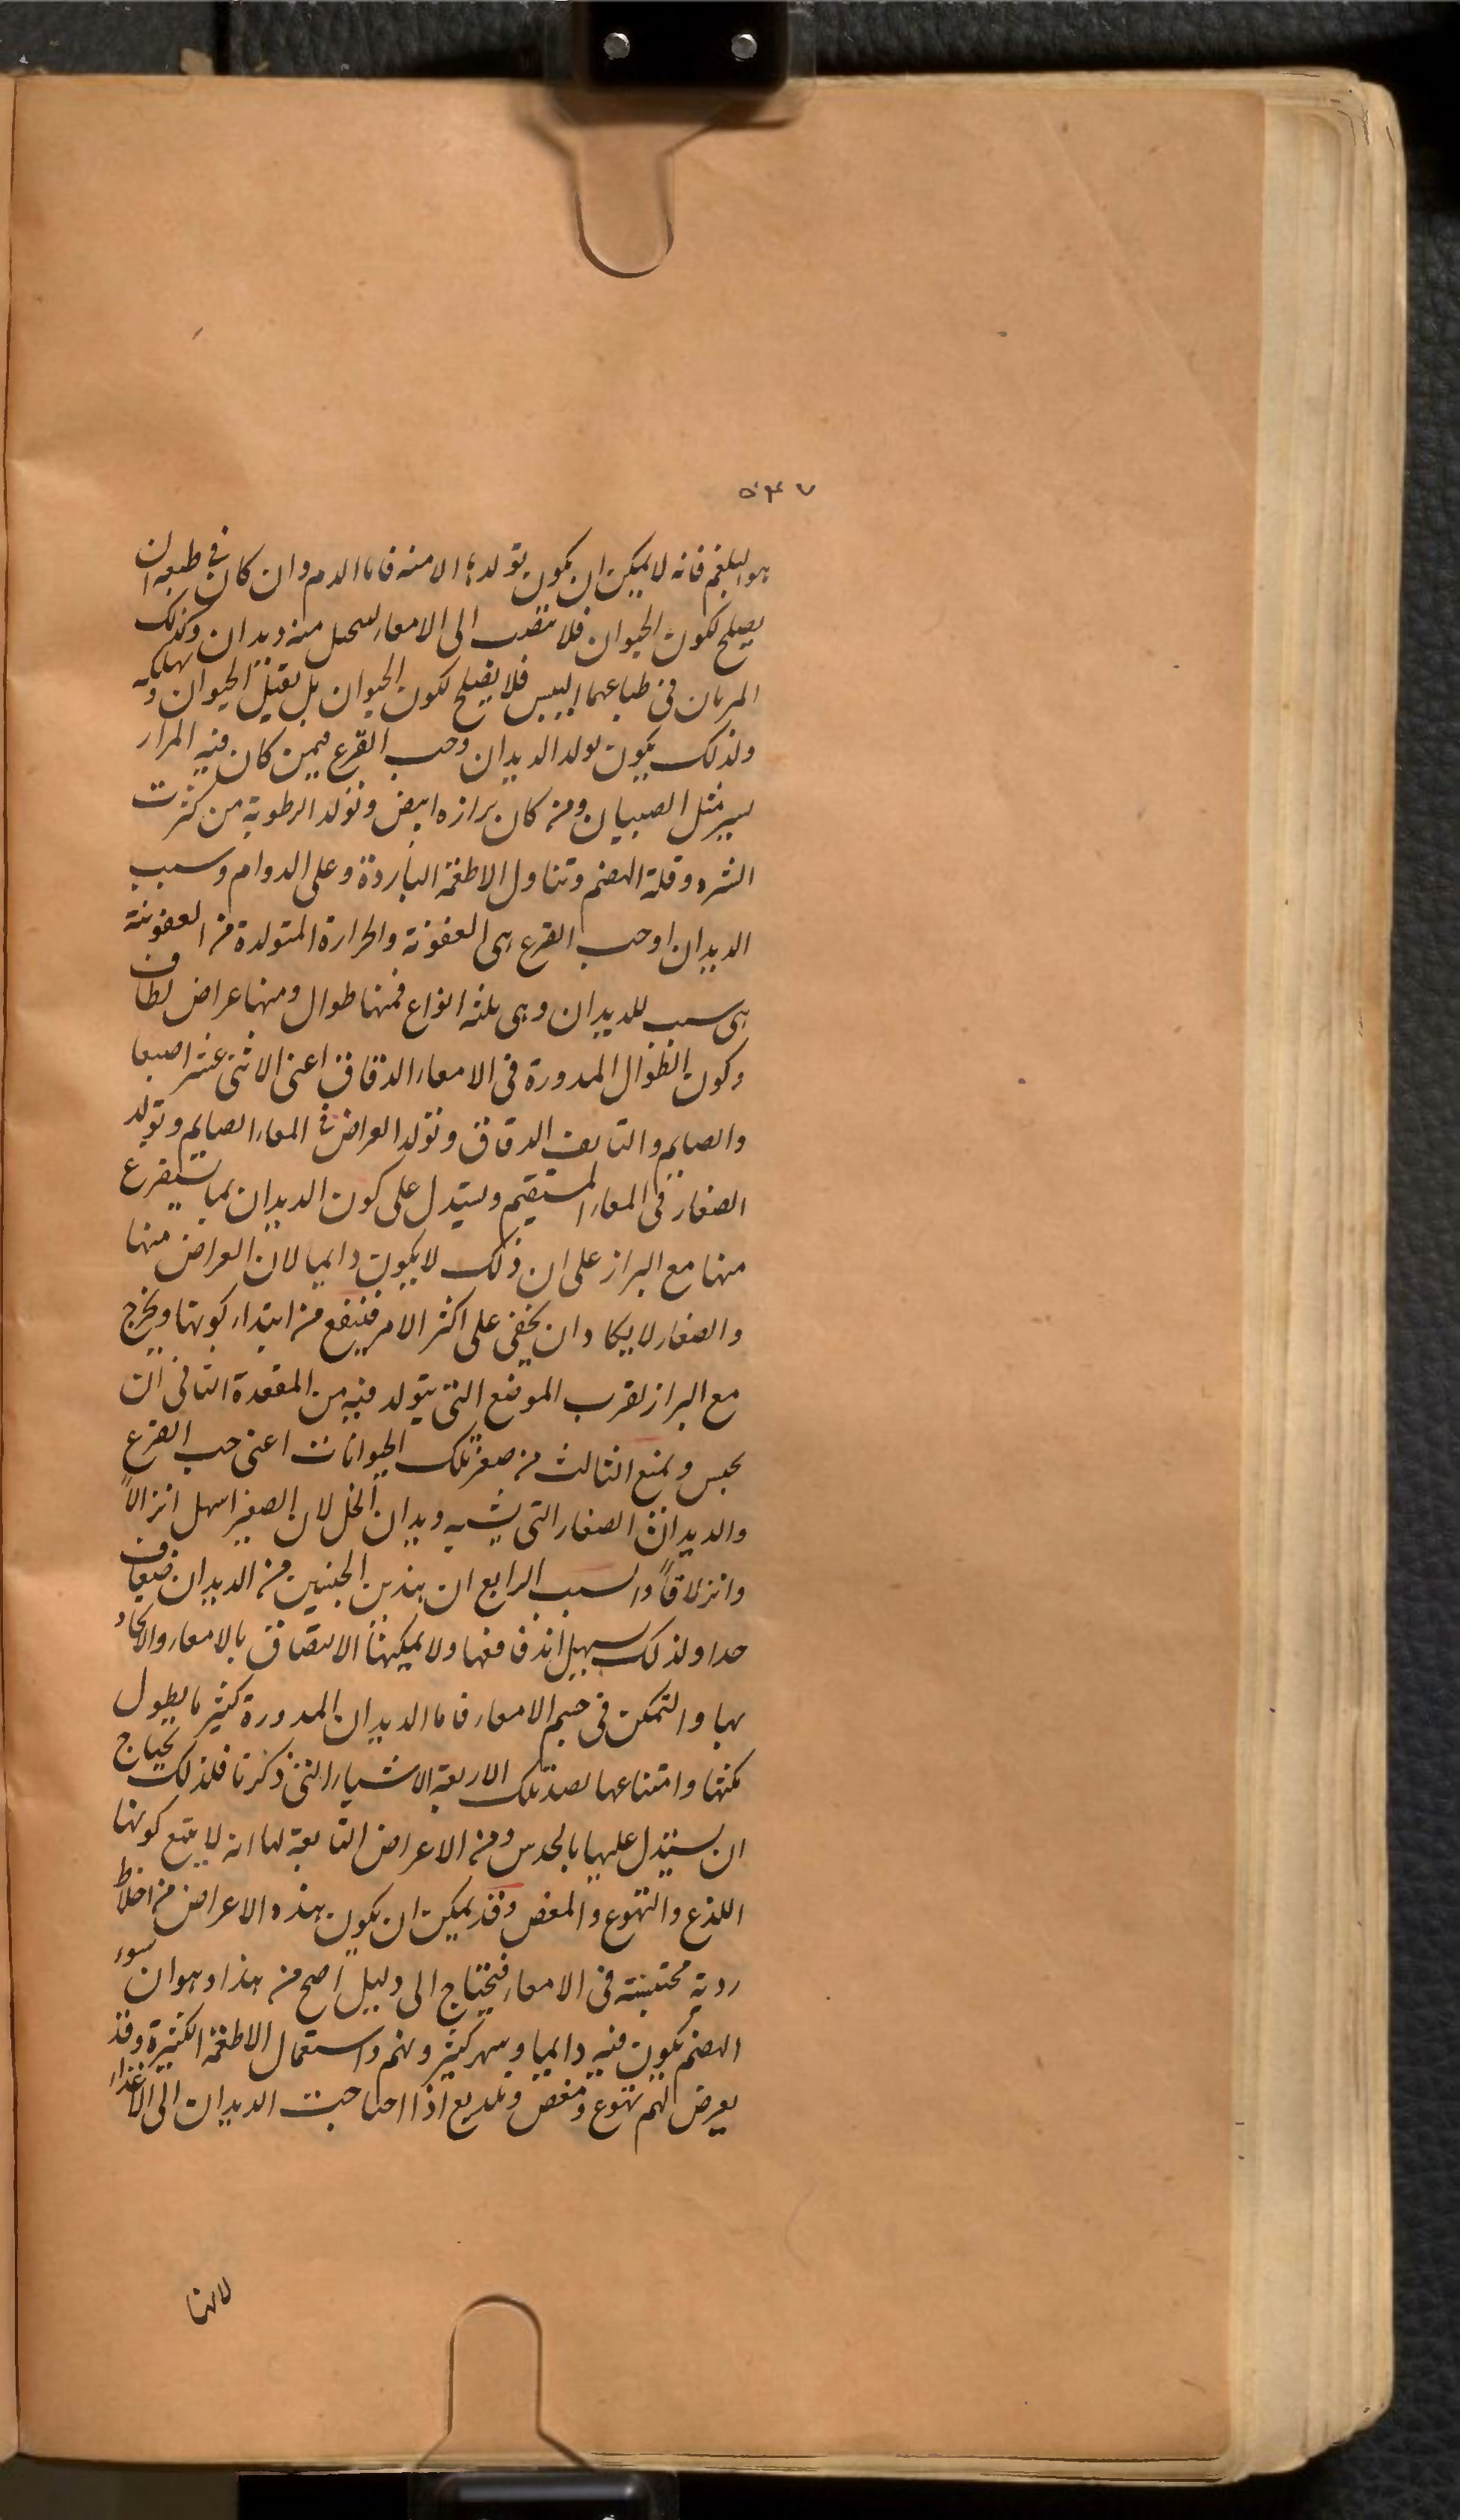 ٥٣٧
هو البلغم فانه لا يمكن ان يكون تولدها الا منه فاما الدم وان كان فى طبعه ان
يصلح لكون الحيوان فلا ينصب الى الامعاء ليستحيل منه ديدان وكذلك
المرتان فى طباعهما اليبس فلا يصلح لكون الحيوان بل يقتل الحيوان ويهلكه
ولذلك يكون تولد الديدان وحب القرع فيمن كان فيه المرار
يسير مثل الصبيان ومن كان برازه ابيض وتولد الرطوبة من كثرت
الشره وقلة الهضم وتناول الاطعمة الباردة وعلى الدوام وسبب
الديدان اوحب القرع هى العفونة والحرارة المتولدة من العفونة
هى سبب للديدان وهى ثلثه انواع فمنها طوال ومنها عراض لطاف
وكون الطوال المدورة فى الامعاء الدقاق اعنى الاثنى عشر اصبعا
والصايم والتايف الدقاق وتولد العراض فى المعاء الصايم وتولد
الصغار فى المعاء المستقيم ويستدل على كون الديدان بما يستفرغ
منها مع البراز على ان ذلك لا يكون دايما لان العراض منها
والصغار لا يكاد ان يخفى على اكثر الامر فينفع من ابتداء كونها ويخرج
مع البراز لقرب الموضع التى يتولد فيه من المقعدة الثانى ان
يحبس ويمنع الثالث من صغر تلك الحيوانات اعنى حب القرع
والديدان الصغار التى يشبه ديدان الخل لان الصغير اسهل انزالاً
وانزلاقاً والسبب الرابع ان هذين الجنسين من الديدان ضعاف
جدا ولذلك سهيل اندفاعها ولا يمكنها الالتصاق بالامعاء والاتحاد
بها والتمكن فى جسم الامعاء فاما الديدان المدورة كثير ما يطول
مكثها وامتناعها لضد تلك الاربعة الاشياء التى ذكرنا فلذلك يحتاج
ان يستدل عليها بالحدس ومن الاعراض التابعة لها انه لا يتبع كونها
اللذع والتهوع والمغص وقد يمكن ان يكون هذه الاعراض من اخلاط
ردية محتبسة فى الامعاء فيحتاج الى دليل اصح من هذا وهو ان سوء
الهضم يكون فيه دايما وسهر كثير ونهم واستعمال الاطعمة الكثيرة وقد
يعرض لهم تهوع ومغص وتلذيع اذا احتاجت الديدان الى الاغذاء
لانها